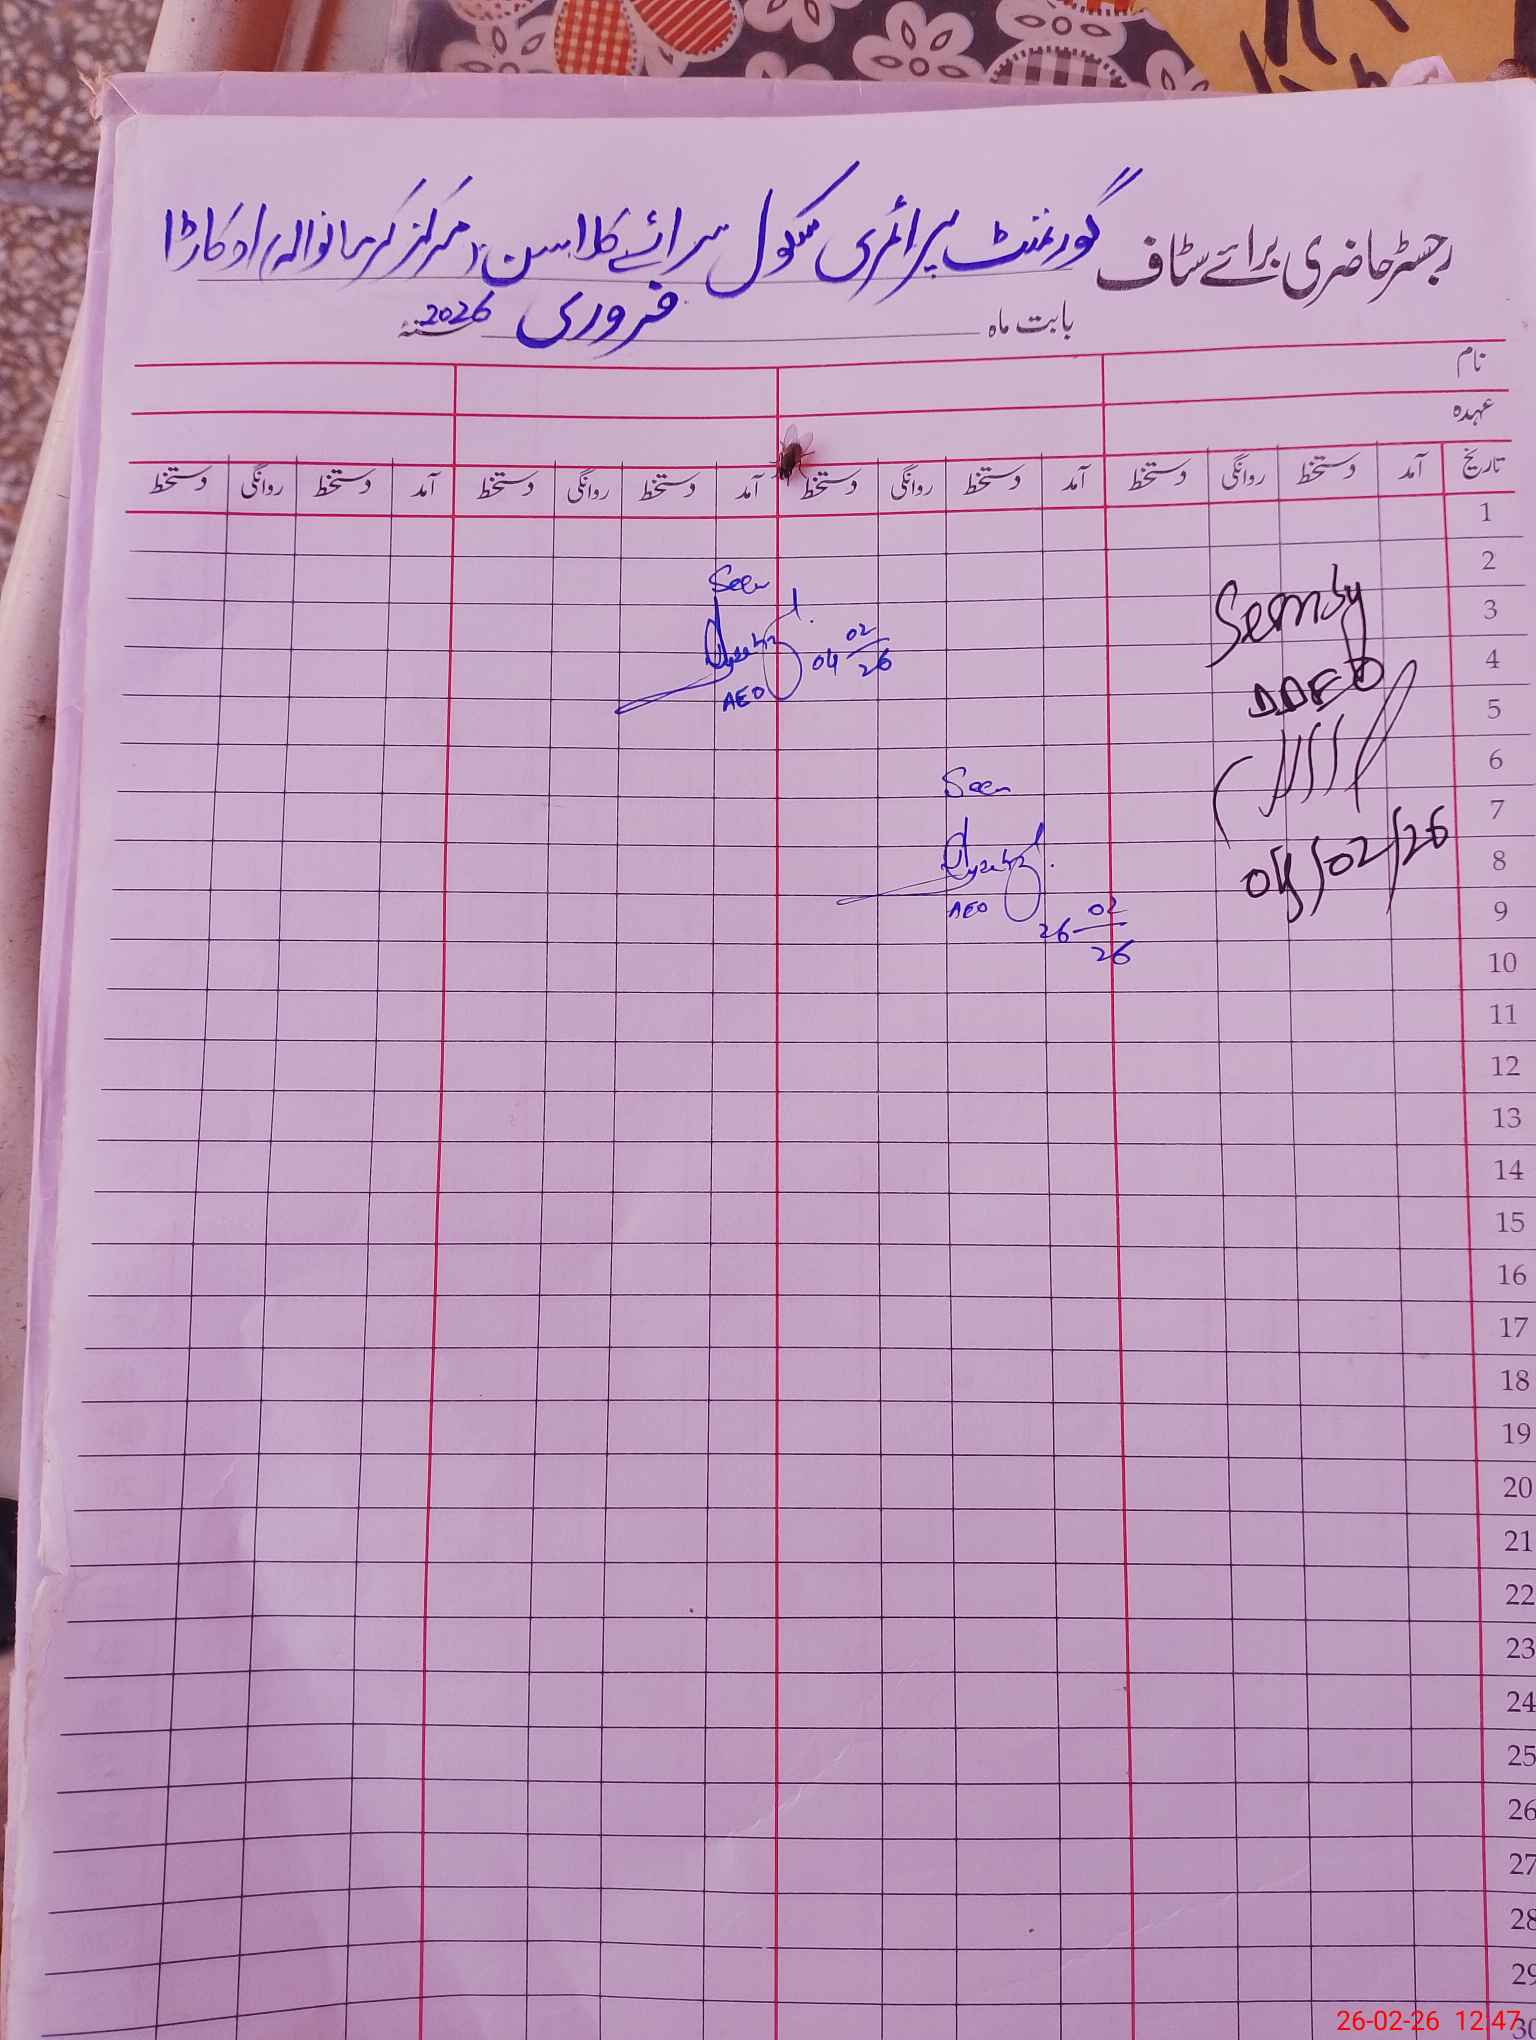 رجسٹر حاضری برائے سٹاف گورنمنٹ پرائمری سکول سرائے کلاسن، مرکز کرمانوالہ/اوکاڑا
بابت ماہ فروری 2026
نام
عہدہ
تاریخ آمد دستخط روانگی دستخط آمد دستخط روانگی دستخط آمد دستخط روانگی دستخط آمد دستخط روانگی دستخط
1
2
Seen
3
Seen by
04 02/26
4
DDEO
AEO
5
6
Seen
7
8
04/02/26
AEO
9
26 02/26
10
11
12
13
14
15
16
17
18
19
20
21
22
23
24
25
26
27
28
29
30
26-02-26 12:47